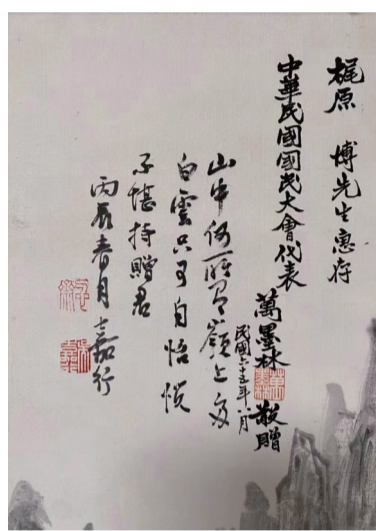 梶原 博先生惠存
中華民國國民大會代表 萬墨林 敬贈
民國六十五年八月
山中何所有嶺上多
白雲只可自怡悅
不堪持贈君
丙辰春月嘉行